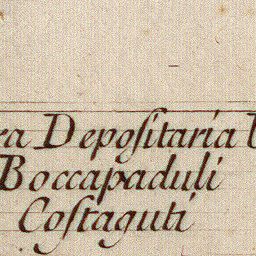 ra Depoſitaria U
Boccapaduli
Coſtaguti